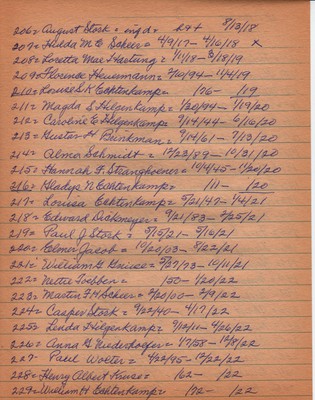 206= August Stock = eng'd = 29+ 8/13/18
207= Hilda M. C. Scheer= 4/9/17 - 4/16/18 x
208= Loretta Mae Hartung= 1/1/18 - 3/19/19
209= Florence Heuermann= 7/10/94 - 1/4/19
210= Louise S.K. Echtenkamp= 176- /19
211= Magda S Hilgenkamp= 2/20/94 - 7/19/20
212= Caroline E. Hilgenkamp= 7/14/44 - 6/16/20
213= Hester H Brinkman= 7/14/61 - 7/13/20
214= Alma Schmidt = 12/23/89 - 10/31/20
215= Hannah F. Stranghoener= 10/4/45 - 11/20/20
216= Gladys N Echtenkamp= 111- 120
217= Louisa Echtenkamp= 5/21/47 - 1/4/21
218= Edward Diekmeyer= 9/21/83 - 2/25/21
219= Paul J. Stock= 5/15/21 - 5/16/21
220= Elmer Jacob= 10/20/03 - 8/22/21
221= William G 5/27/73 - 10/11/21
222= Nettie Toebben= 150- 1/20/22
223= Martin F.H. Scheer= 2/20/00 - 2/9/22
224= Casper Stock= 9/22/40 - 4/17/22
225= Linda S Hilgenkamp= 9/12/11 - 4/26/22
226= Anna G. Niederhoefer= 4/7/58 - 10/8/22
227- Paul Wolter= 4/22/45 - 12/22/22
228= Henry Albert Kruse= 162- 122
229= William H Echtenkamp= 172- 122